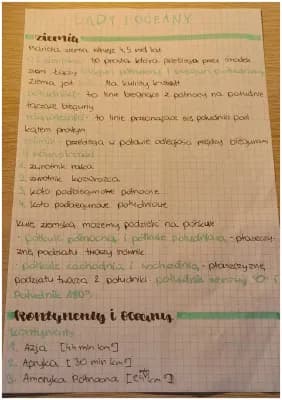 LĄDY I OCEANY
ziemia
Planeta ziemia istnieje 4,5 mld lat
to prosta która przebiega przez środek
ziemi łączy biegun północny i biegun południowy
ziemia jest na kulisty kształt
południki - to linie biegnące z północy na południe
łączące bieguny
równoleżniki - to linie przecinające się południki pod
kątem prostym
równik - przebiega w połowie odległości między biegunami
4 równoleżniki
1. zwrotnik raka
2. zwrotnik koziorożca
3. koło podbiegunowe północne
4. koło podbiegunowe południowe
Kulę ziemską możemy podzielić na półkule
- półkulę północną i półkulę południową - płaszczy-
znę podziału tworzy równik
- półkulę zachodnią i wschodnią - płaszczyznę
podziału tworzą 2 południki - południk zerowy 0° i
Południk 180°
Kontynenty i Oceany
kontynenty
1. Azja [44 mln km²]
2. Afryka [30 mln km²]
3. Ameryka Północna [24 km²]